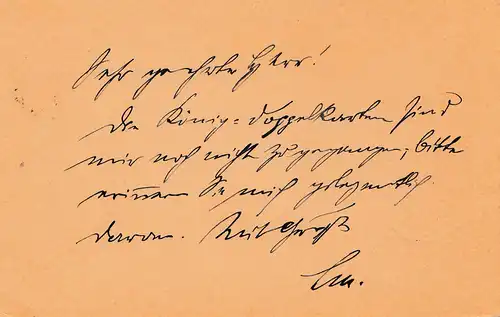 Sehr geehrter Herr!
Die König-Doppelkarten sind
mir noch nicht zugegangen; bitte
erinnern Sie mich gelegentlich
daran. Mit Gruß